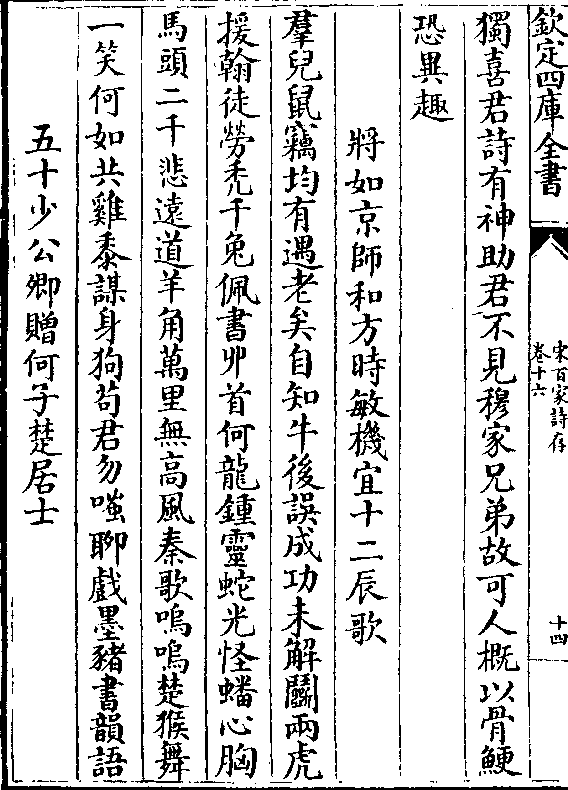 欽定四庫全書
宋百家詩存
卷十六
十四
獨喜君詩有神助君不見穆家兄弟故可人概以骨鯁
恐異趣
將如京師和方時敏機宜十二辰歌
羣兒鼠竊均有遇老矣自知牛後誤成功未解鬭兩虎
援翰徒勞秃千兔佩書丱首何龍鍾靈蛇光怪蟠心胸
馬頭二千悲遠道羊角萬里無高風秦歌嗚嗚楚猴舞
一笑何如共雞黍謀身狗苟君勿嗤聊戲墨豬書韻語
五十少公卿贈何子楚居士